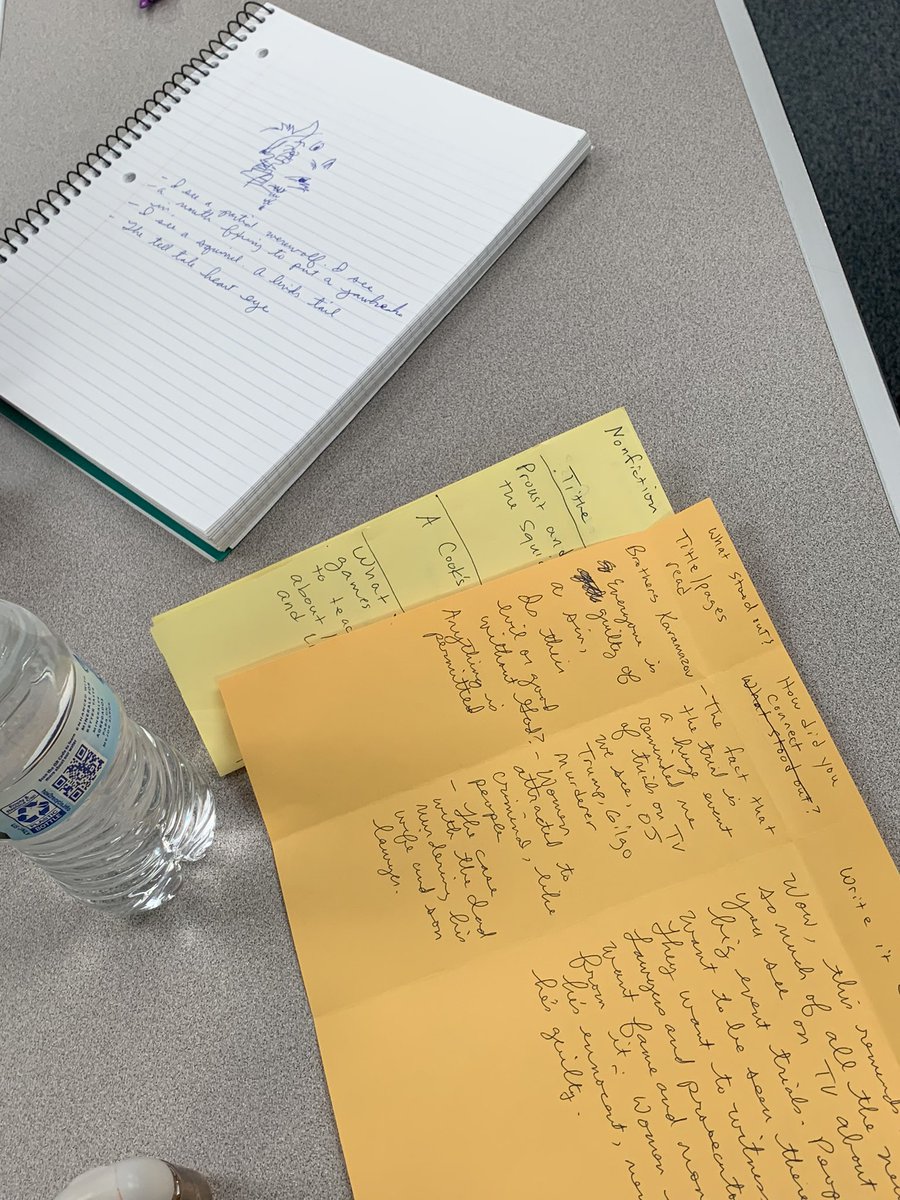 - I see a partial werewolf. I see
a mouth fixing to put a jawbreaker
in
- I see a squirrel. A birds tail
The tell tale heart eye
Nonfiction
Title
Proust and
the Squi
A Cook's
What
games
to teac
about
and
What stood out?
Title/pages
read
Brothers Karamazov
Everyone is
guilty of
a sin,
do their
evil or good
without God?
Anything is
permitted
How did you
connect
What stood out?
- The fact that
the trial is
a huge event
reminded me
of trials on TV
we see, OJ
Trump, Gilgo
murder
- Women
attracted to
criminal, like
people
- The case
with the dad
murdering his
wife and son
lawyer.
Write it
Wow, this reminds
so much of all the ne
you see on TV about
big event trials. Peop
want to be seen there
they want to witness
Lawyers and prosecut
want fame and mon
from it - Women -
he's ennocent,
he's guilty.